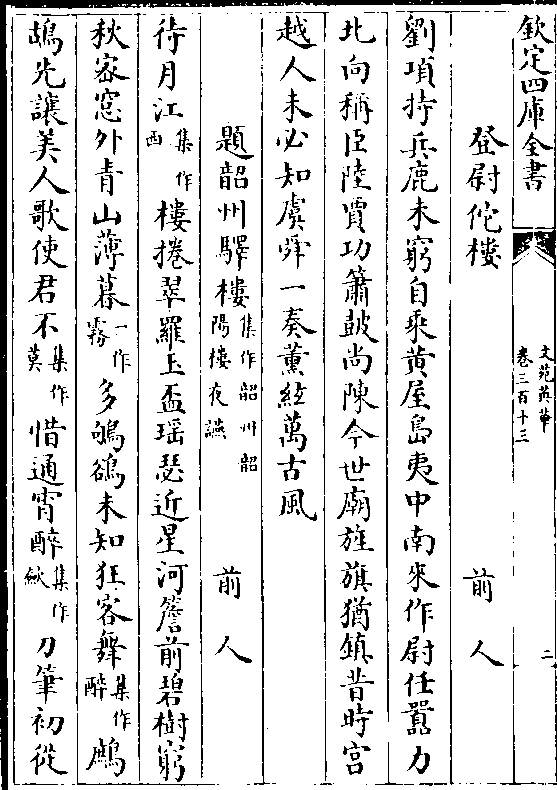 欽定四庫全書
文苑英華
卷三百十三
二
登尉佗樓 前人
劉項持兵鹿未窮自乘黄屋島夷中南來作尉任囂力
北向稱臣陸賈功簫鼓尚陳今世廟旌旗猶鎮昔時宫
越人未必知虞舜一奏薰絃萬古風
題韶州驛樓集作韶州韶陽樓夜讌 前人
待月江集作西樓捲翠羅玉盃瑶瑟近星河簷前碧樹窮
秋密窓外青山薄暮一作霧多鴝鵒未知狂客舞集作醉鷓
鴣光讓美人歌使君不集作莫惜通宵醉集作飲刀筆初從